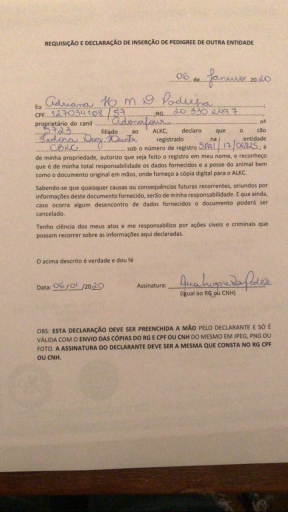 REQUISIÇÃO E DECLARAÇÃO DE INSERÇÃO DE PEDIGREE DE OUTRA ENTIDADE
06 de Janeiro 2020
Eu Adriana M D
CPF RG
proprietário do canil nº
5723 filiado ao ALKC, declaro que o cão
registrado na entidade
CBKC sob o número de registro é
de minha propriedade, autorizo que seja feito o registro em meu nome, e reconheço
que é de minha total responsabilidade os dados fornecidos e a posse do animal bem
como o documento original em mãos, onde forneço a cópia digital para o ALKC.
Sabendo-se que quaisquer causas ou consequências futuras recorrentes, oriundos por
informações deste documento fornecido, serão de minha responsabilidade. E que ainda,
caso ocorra algum desencontro de dados fornecidos o documento poderá ser
cancelado.
Tenho ciência dos meus atos e me responsabilizo por ações cíveis e criminais que
possam recorrer sobre as informações aqui declaradas.
O acima descrito é verdade e dou fé
Data: 06/01/2020 Assinatura:
(igual ao RG ou CNH)
OBS: ESTA DECLARAÇÃO DEVE SER PREENCHIDA A MÃO PELO DECLARANTE E SÓ É
VÁLIDA COM O ENVIO DAS CÓPIAS DO RG E CPF OU CNH DO MESMO EM JPEG, PNG OU
FOTO. A ASSINATURA DO DECLARANTE DEVE SER A MESMA QUE CONSTA NO RG CPF
OU CNH.